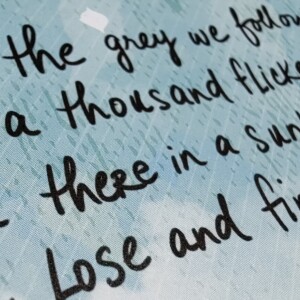 the grey we follow
a thousand flicke
there in a sun
Lose and fin